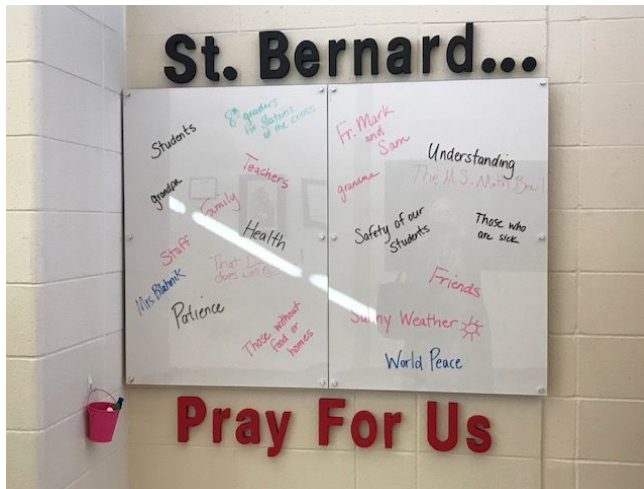 St. Bernard...
Students
8th graders
for Stations
of the cross
grandpa
Teachers
Family
Staff
Health
That
does well
Mrs.
Patience
Those without
food or
homes
Fr. Mark
and
Sam
Understanding
grandma
The M.S. Math Bowl
Safety of our
students
Those who
are sick
Friends
Sunny Weather
World Peace
Pray For Us